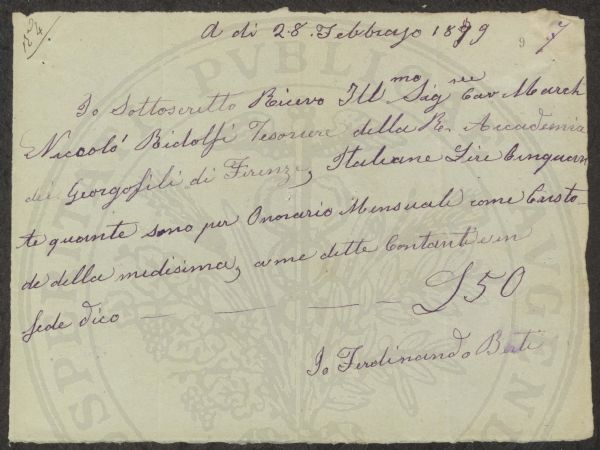 A di 28. Febbrajo 1879
9
7
Io Sottoscritto Ricevo Ill.mo Sig.re Cav March
Niccoló Ridolfi Tesoriere della Re. Accademia
dei Georgofili di Firenze, Italiane Lire Cinquan
te quante sono per Onorario Mensuale come Custo-
de della medisima, a me dette Contante e in
fede dico — — — — £50
Io Ferdinando Berti
PUBBLICA